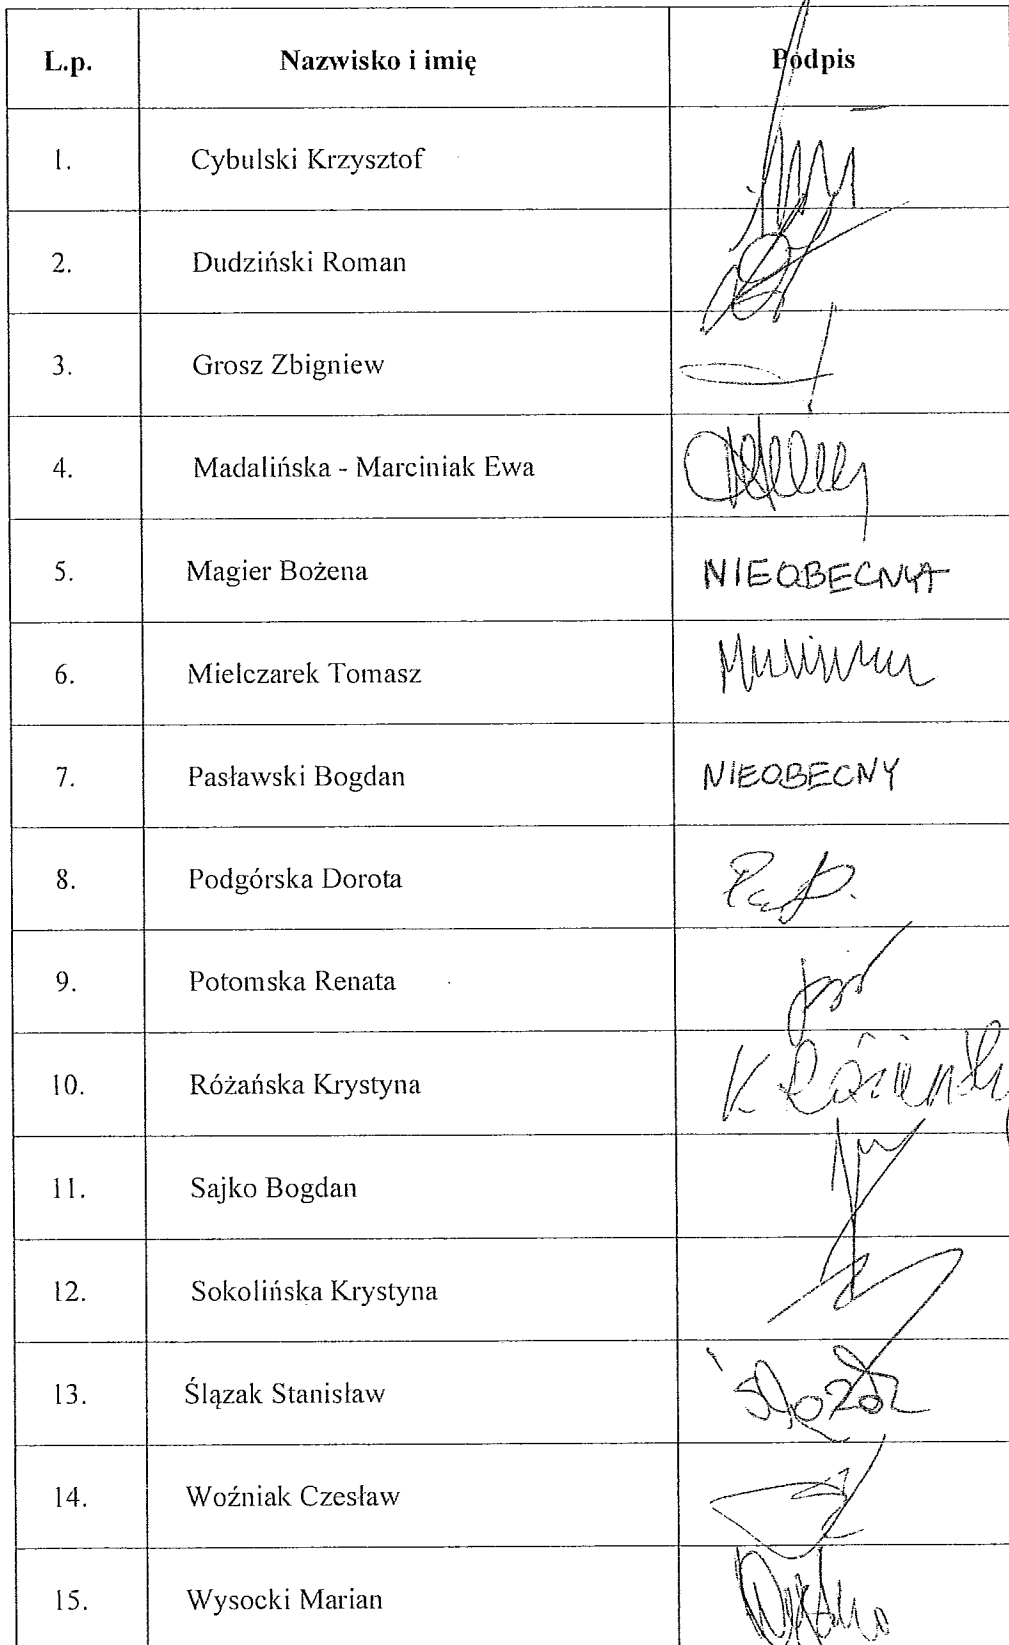 L.p. Nazwisko i imię Podpis
1. Cybulski Krzysztof
2. Dudziński Roman
3. Grosz Zbigniew
4. Madalińska - Marciniak Ewa
5. Magier Bożena NIEOBECNA
6. Mielczarek Tomasz
7. Pasławski Bogdan NIEOBECNY
8. Podgórska Dorota
9. Potomska Renata
10. Różańska Krystyna
11. Sajko Bogdan
12. Sokolińska Krystyna
13. Ślązak Stanisław
14. Woźniak Czesław
15. Wysocki Marian